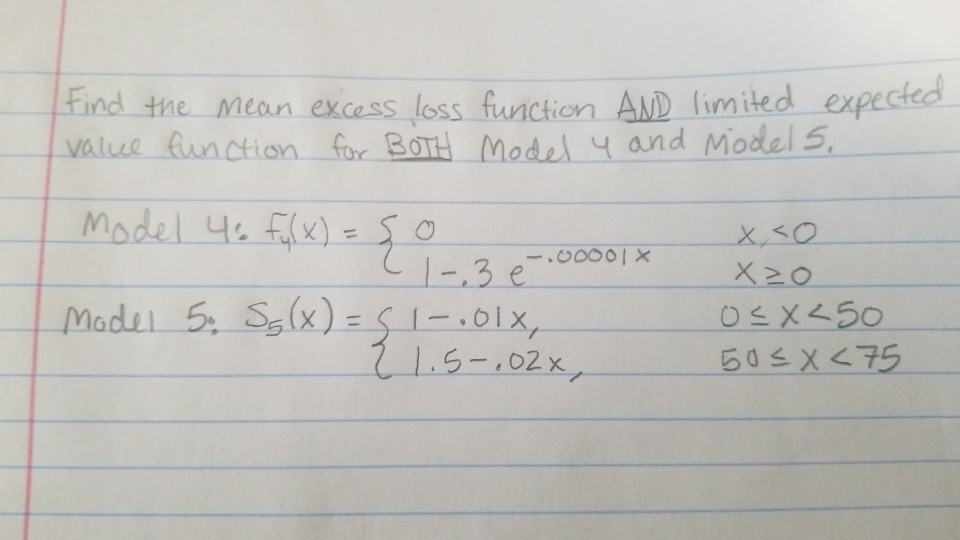 Find the mean excess loss function AND limited expected
value function for BOTH Model 4 and Model 5.
Model 4: F₄(x) = { 0 x < 0
1-.3 e^-.00001x x ≥ 0
Model 5: S₅(x) = { 1-.01x, 0 ≤ x < 50
1.5-.02x, 50 ≤ x < 75